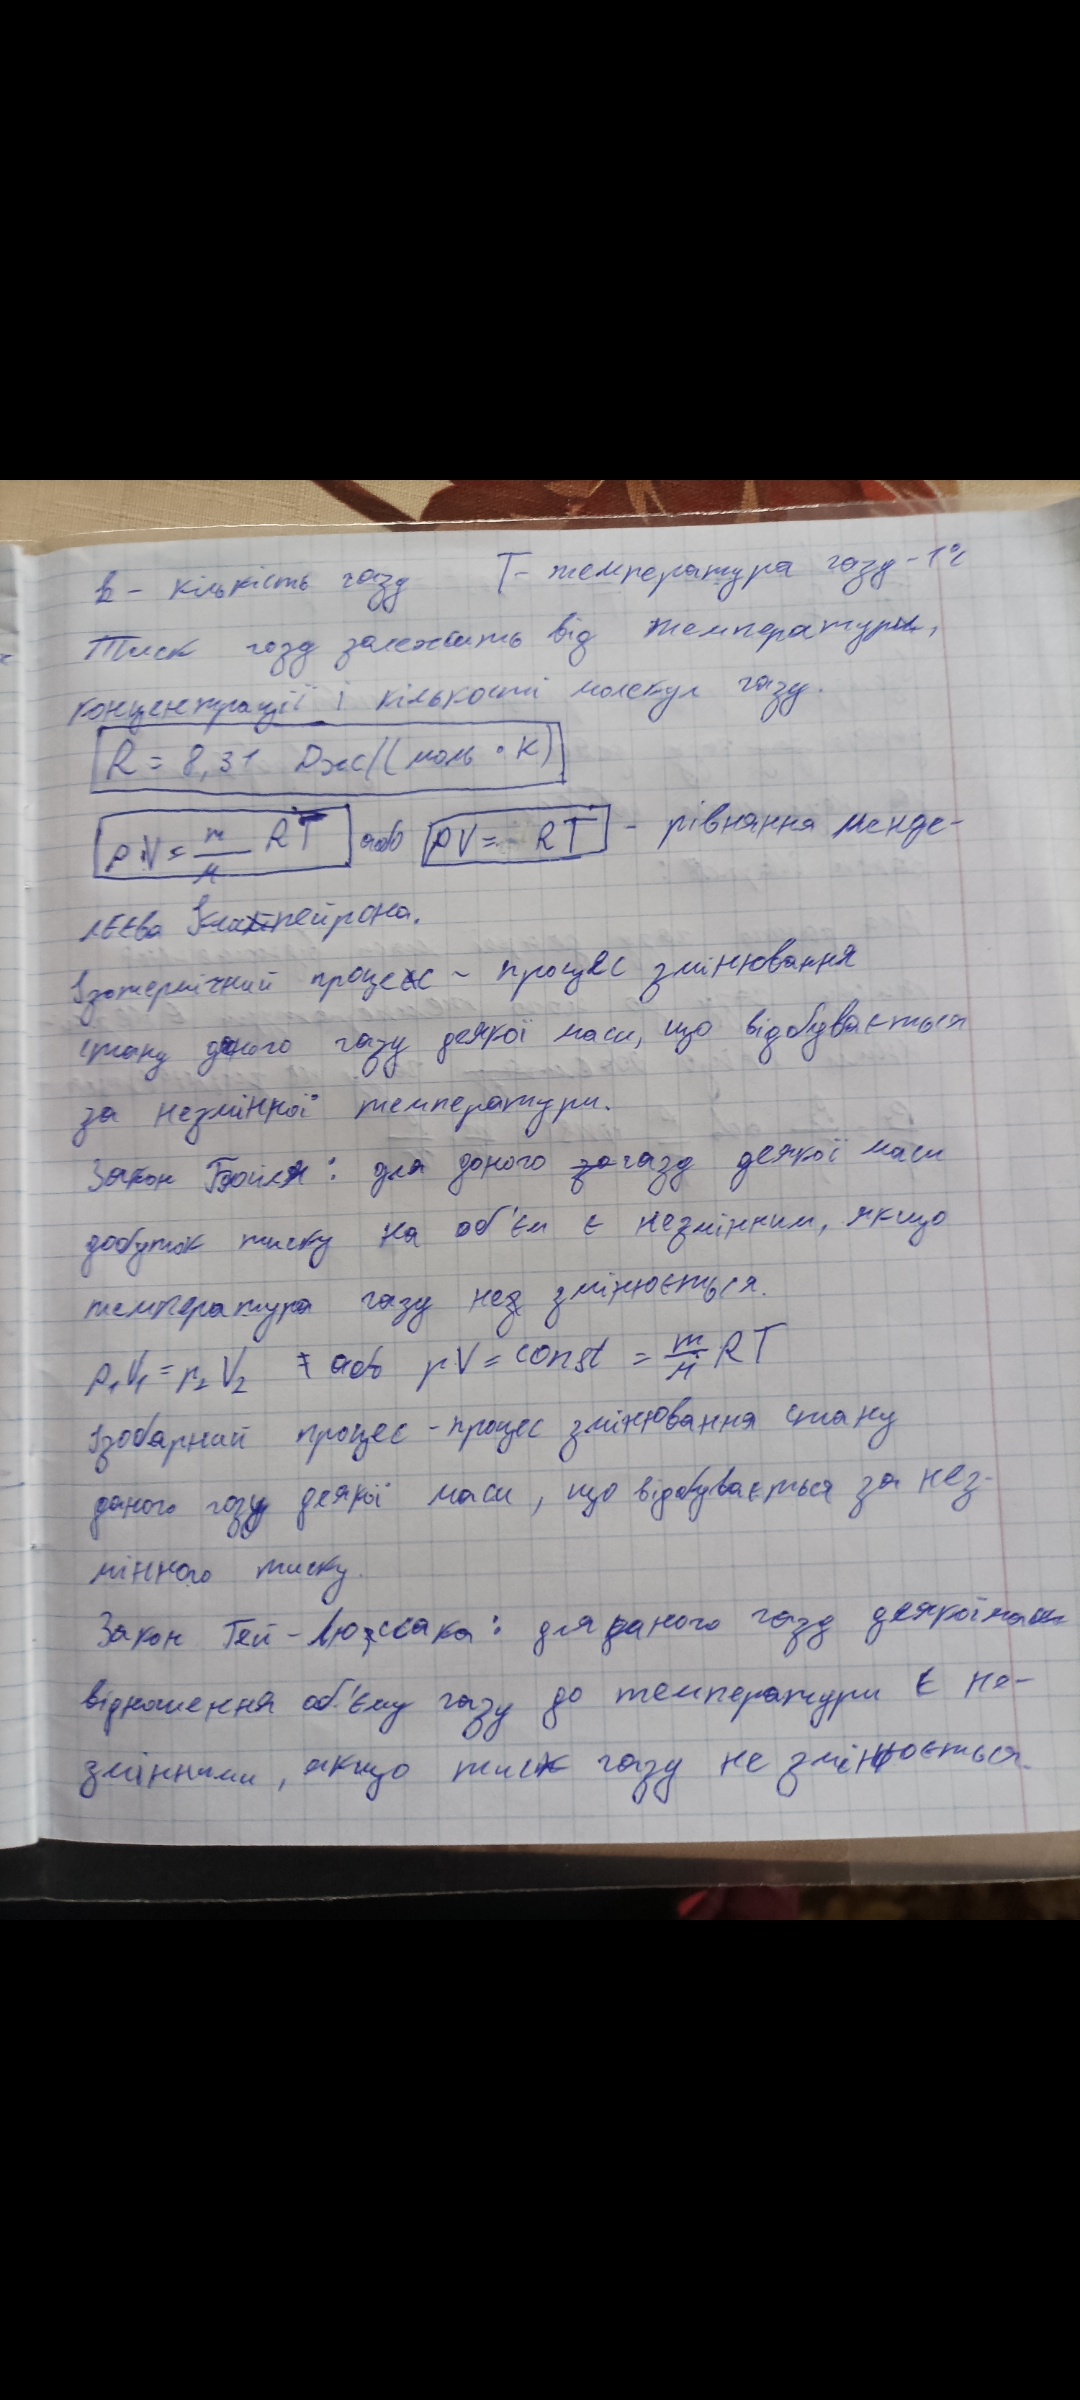 - кількість газу T - температура газу - 1°C
Тиск газу залежить від температури,
концентрації і кількості молекул газу.
R = 8,31 Дж/(моль • К)
pV = m/M RT або pV = RT - рівняння Менде-
лєєва Клапейрона.
Ізотермічний процес - процес змінювання
стану даного газу деякої маси, що відбувається
за незмінної температури.
Закон Бойля: для даного газу деякої маси
добуток тиску на об'єм є незмінним, якщо
температура газу не змінюється.
p₁V₁ = p₂V₂ або pV = const = m/M RT
Ізобарний процес - процес змінювання стану
даного газу деякої маси, що відбувається за нез-
мінного тиску.
Закон Гей-Люссака: для даного газу деякої маси
відношення об'єму газу до температури є не-
змінними, якщо тиск газу не змінюється.